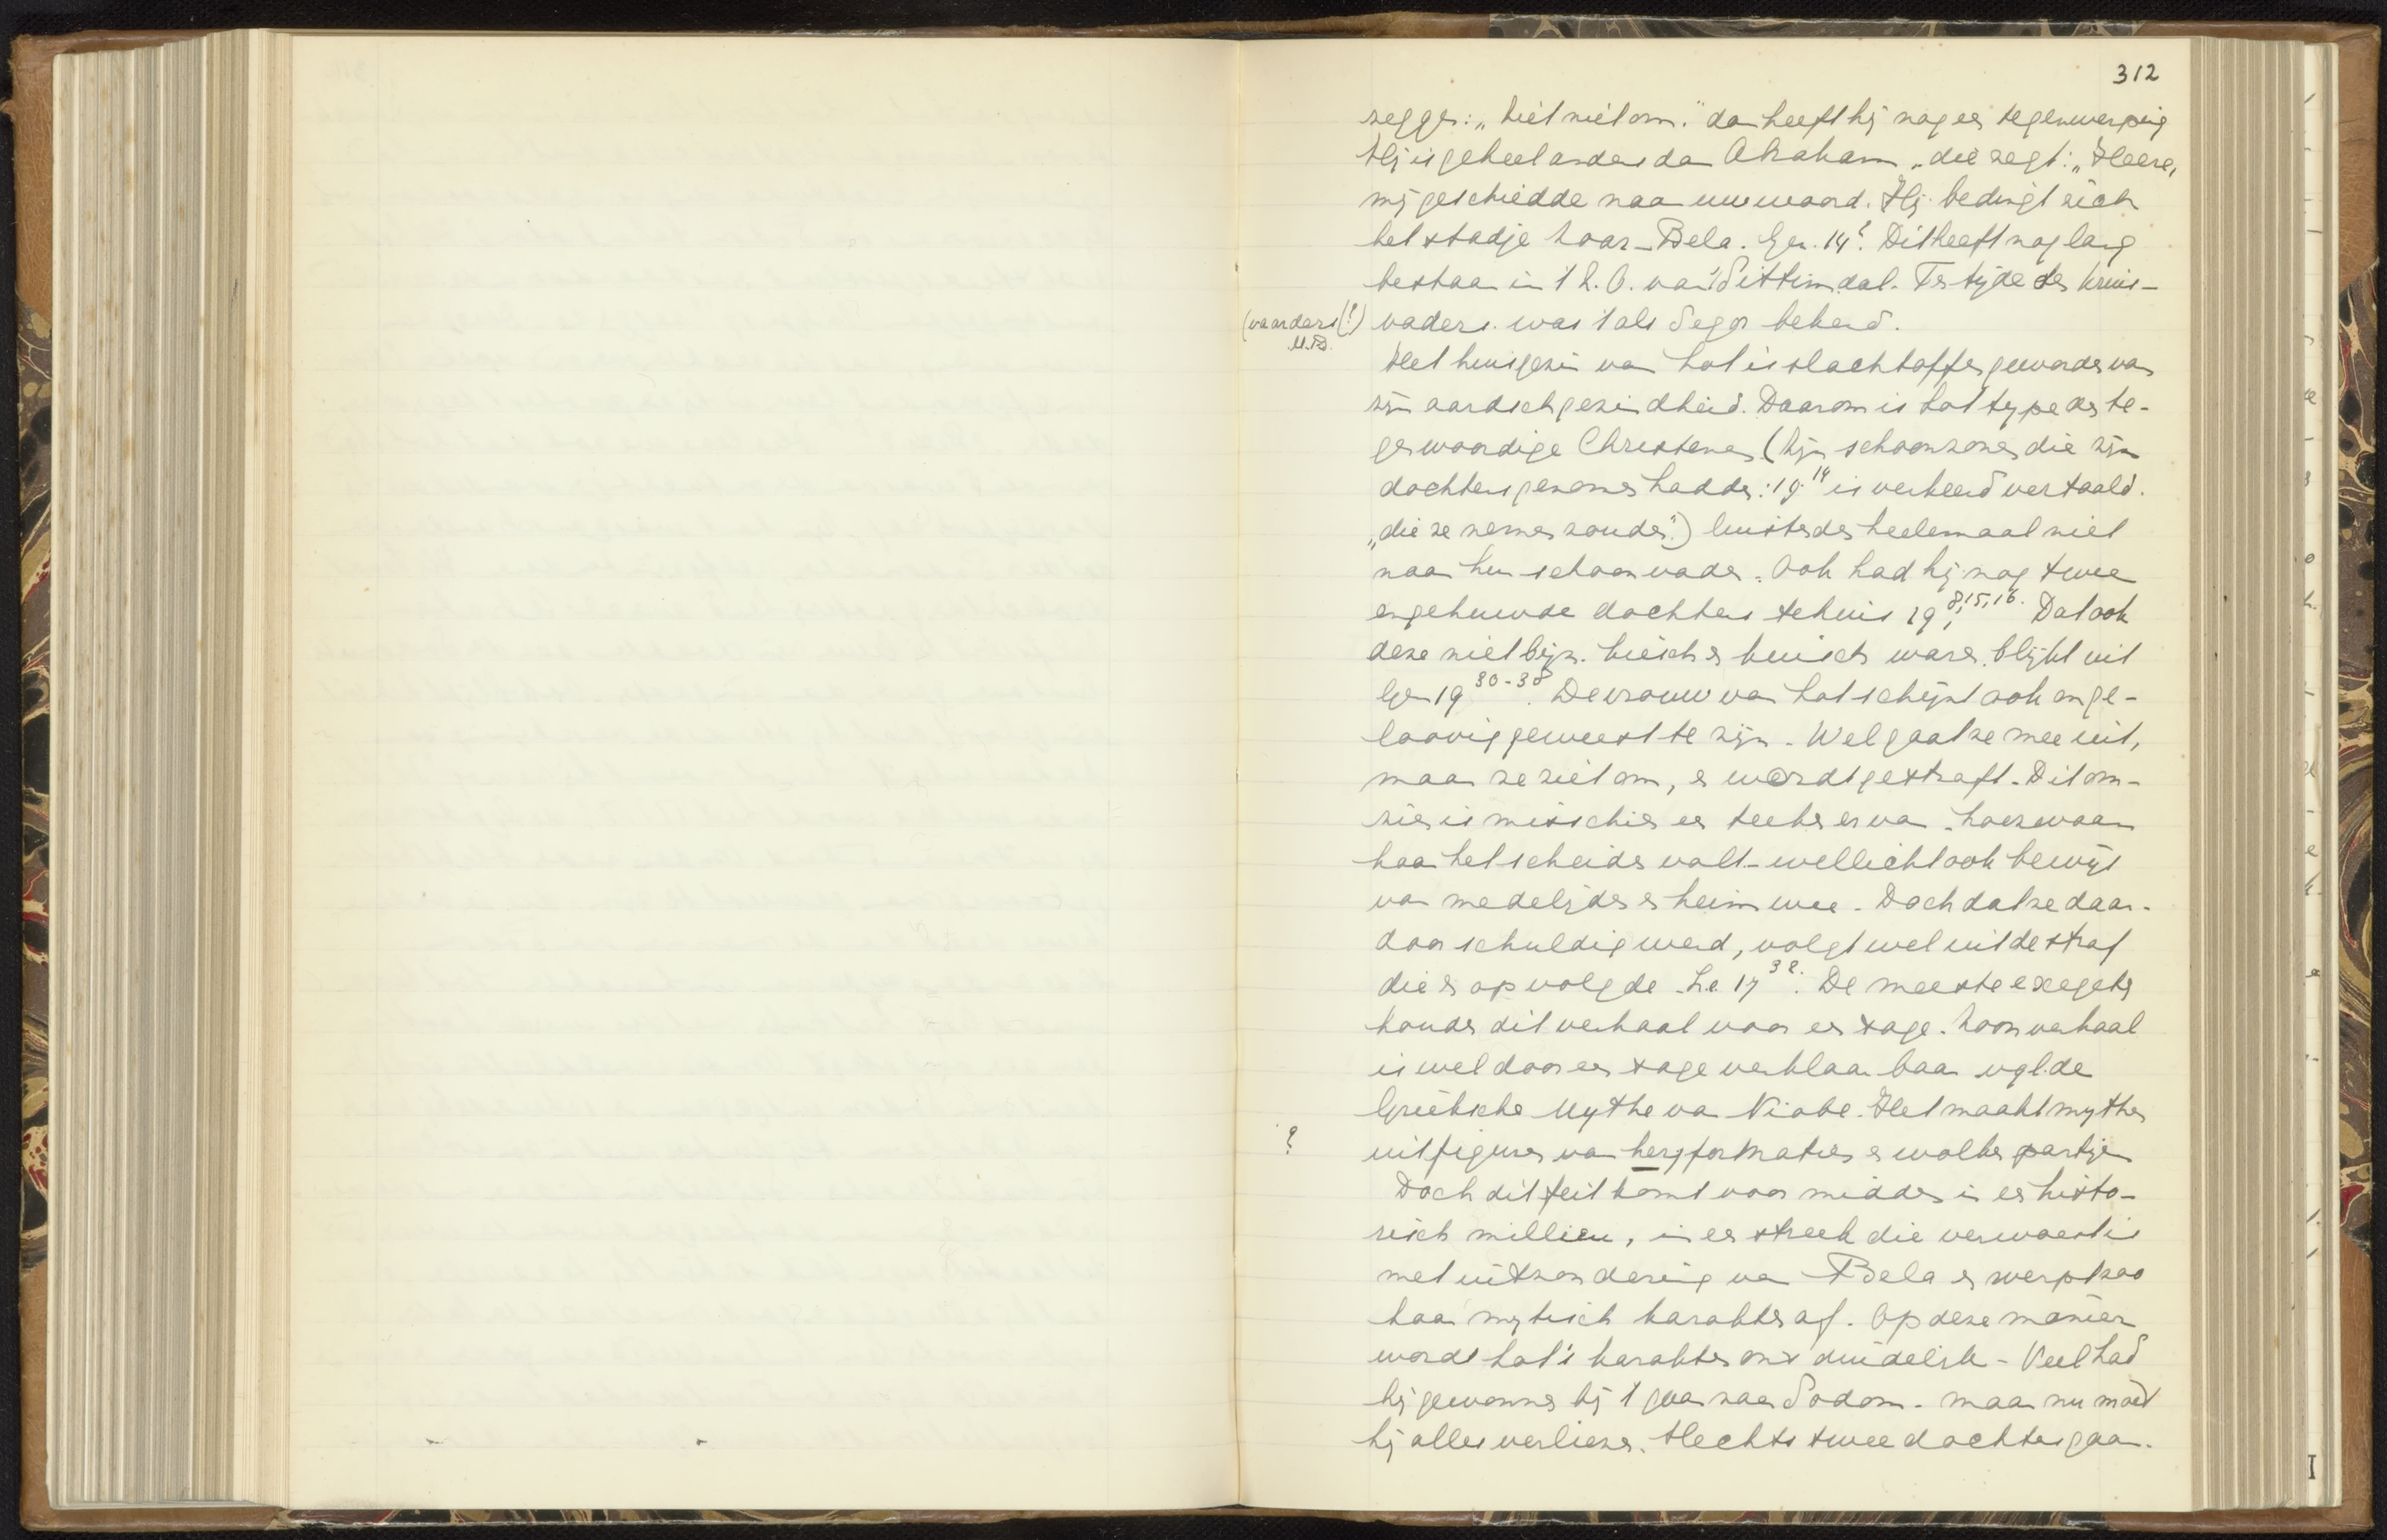 312
zegge: „ziet niet om." dan heeft hij nog een tegenwerping
Hij is geheel anders dan Abraham, die zegt: „Heere,
mij geschiedde naar uw woord. Hij bedingt zich
het stadje Zoar-Bela. Gen. 14². Dit heeft nog lang
bestaan in 't Z.O. van Sittimdal. Ten tijde der kruis-
(vaarders(?) vaders was 't als Segor bekend.
M.B.
Het huisgezin van Lot is slachtoffer geworden van
zijn aardschgezindheid. Daarom is Lot type der te-
genwoordige Christenen (Zijn schoonzonen die zijn
dochters genomen hadden: 19.¹⁴ is verkeerd vertaald.
„die ze nemen zouden") luisterden heelemaal niet
naar hun schoonvader. Ook had hij nog twee
ongehuwde dochters tehuis 19 8,15,16. Dat ook
deze niet bijz. kiesch en kuisch waren, blijkt uit
Gen 19 30-38. De vrouw van Lot schijnt ook onge-
loovig geweest te zijn. Wel gaat ze mee uit,
maar ze ziet om, en wordt gestraft. Dit om-
zien is misschien een teeken ervan, hoe zwaar
haar het scheiden valt - wellicht ook bewijs
van medelijden en heimwee. Doch dat ze daar-
door schuldig werd, volgt wel uit de straf
die er op volgde. Lc. 17 32. De meeste exegeten
houden dit verhaal voor een sage. Zoo'n verhaal
is wel door een sage verklaarbaar vgl. de
Grieksche Mythe van Niobe. Het maakt mythen
? uit figuren van bergformaties en wolken partijen
Doch dit feit komt voor midden in een histo-
risch millieu, in een streek die verwoest is
met uitzondering van Bela en werpt zoo
haar mytisch karakter af. Op deze manier
wordt Lot's karakter ons duidelijk - Veel had
hij gewonnen bij 't gaan naar Sodom - maar nu moet
hij alles verliezen. Slechts twee dochters gaan.